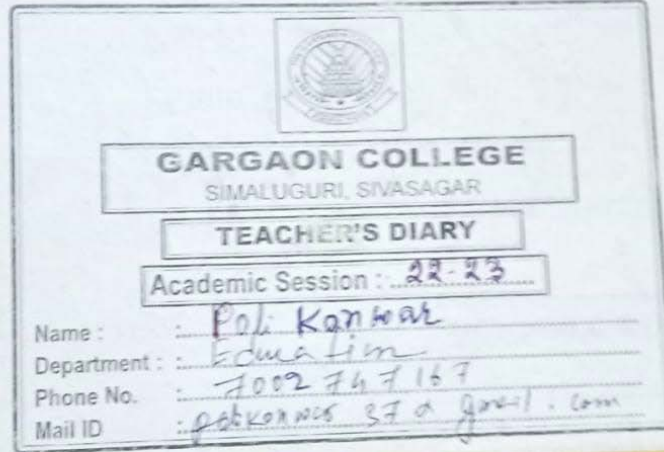 GARGAON COLLEGE
SIMALUGURI, SIVASAGAR
TEACHER'S DIARY
Academic Session : 22-23
Name : : Poli Konwar
Department : : Education
Phone No. : 7002747167
Mail ID : 37@gmail.com